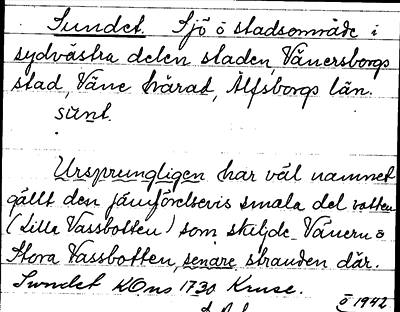 Sundet. Sjö o stadsområde i
sydvästra delen staden, Vänersborgs
stad, Väne härad, Älfsborgs län.
sunt.
Ursprungligen har väl namnet
gällt den jämförelsevis smala del vatten
(Lilla Vassbotten) som skilde Vänern o
Stora Vassbotten, senare stranden där.
Sundet KOns 1730 Kruse.
1942